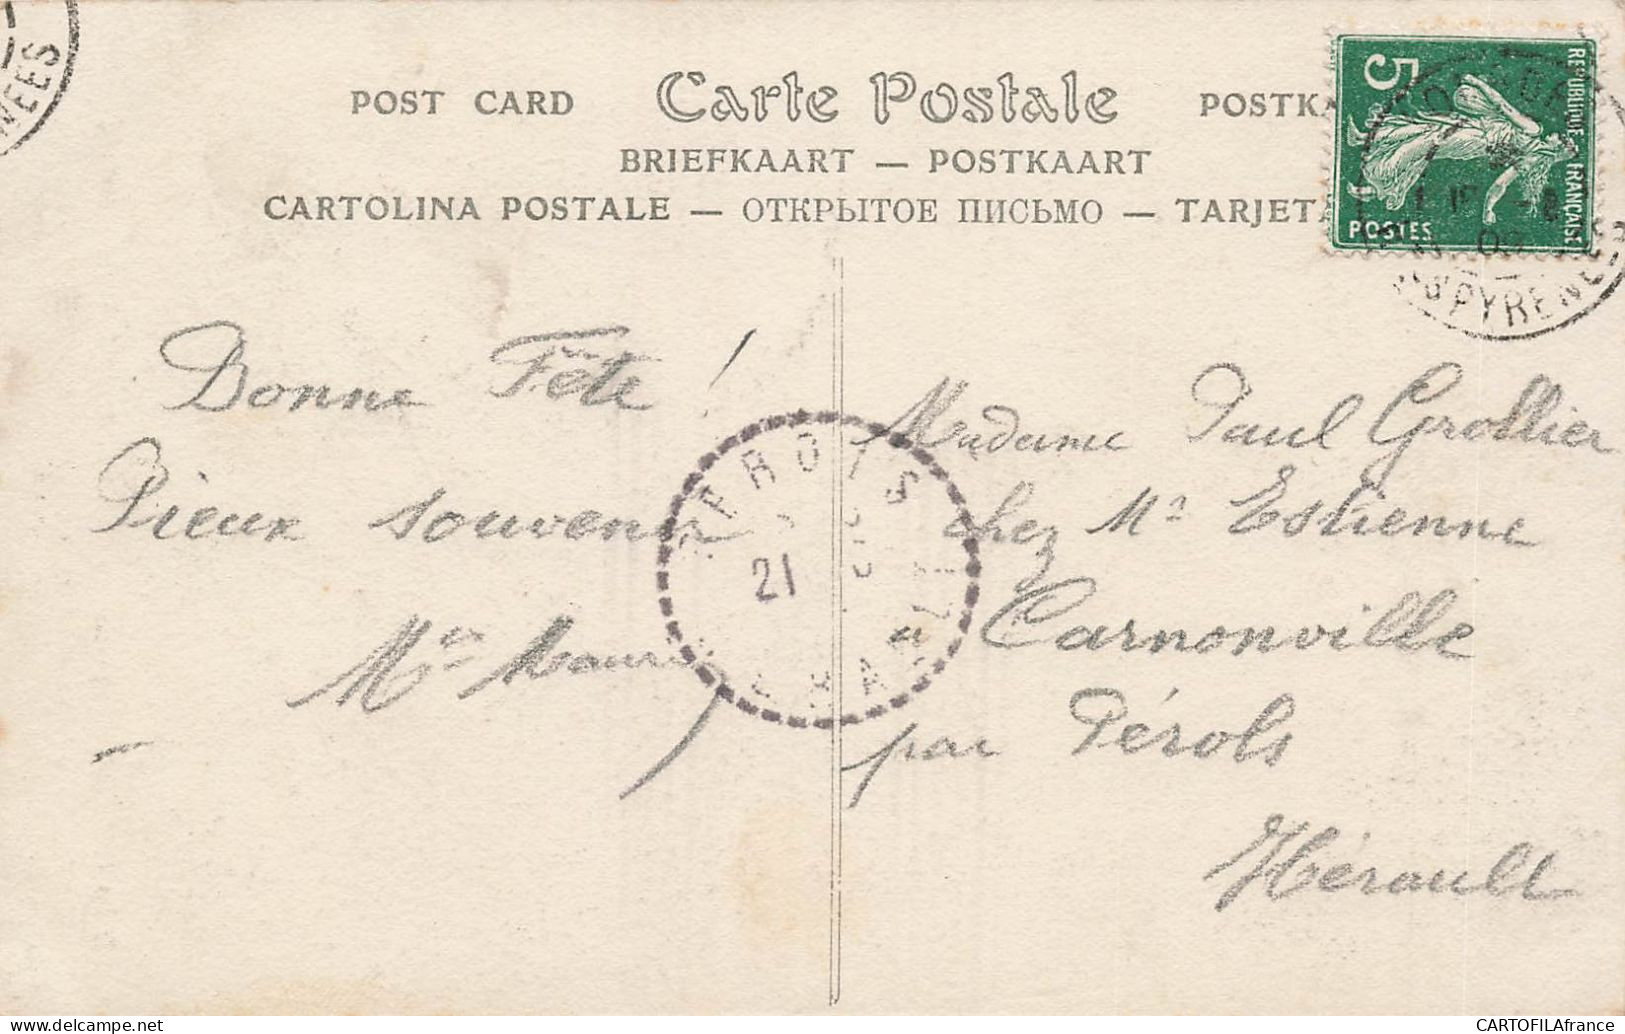 POST CARD Carte Postale POSTKA
BRIEFKAART — POSTKAART
CARTOLINA POSTALE — ОТКРЫТОЕ ПИСЬМО — TARJETA
5
REPUBLIQUE FRANÇAISE
POSTES
09
PYRENEES
NEES
Bonne Fête !
Pieux souvenir
PEROLS
21
Madame Paul Grollier
chez Mr Estienne
à Carnonville
par Pérols
Hérault
CARTOFILAfrance